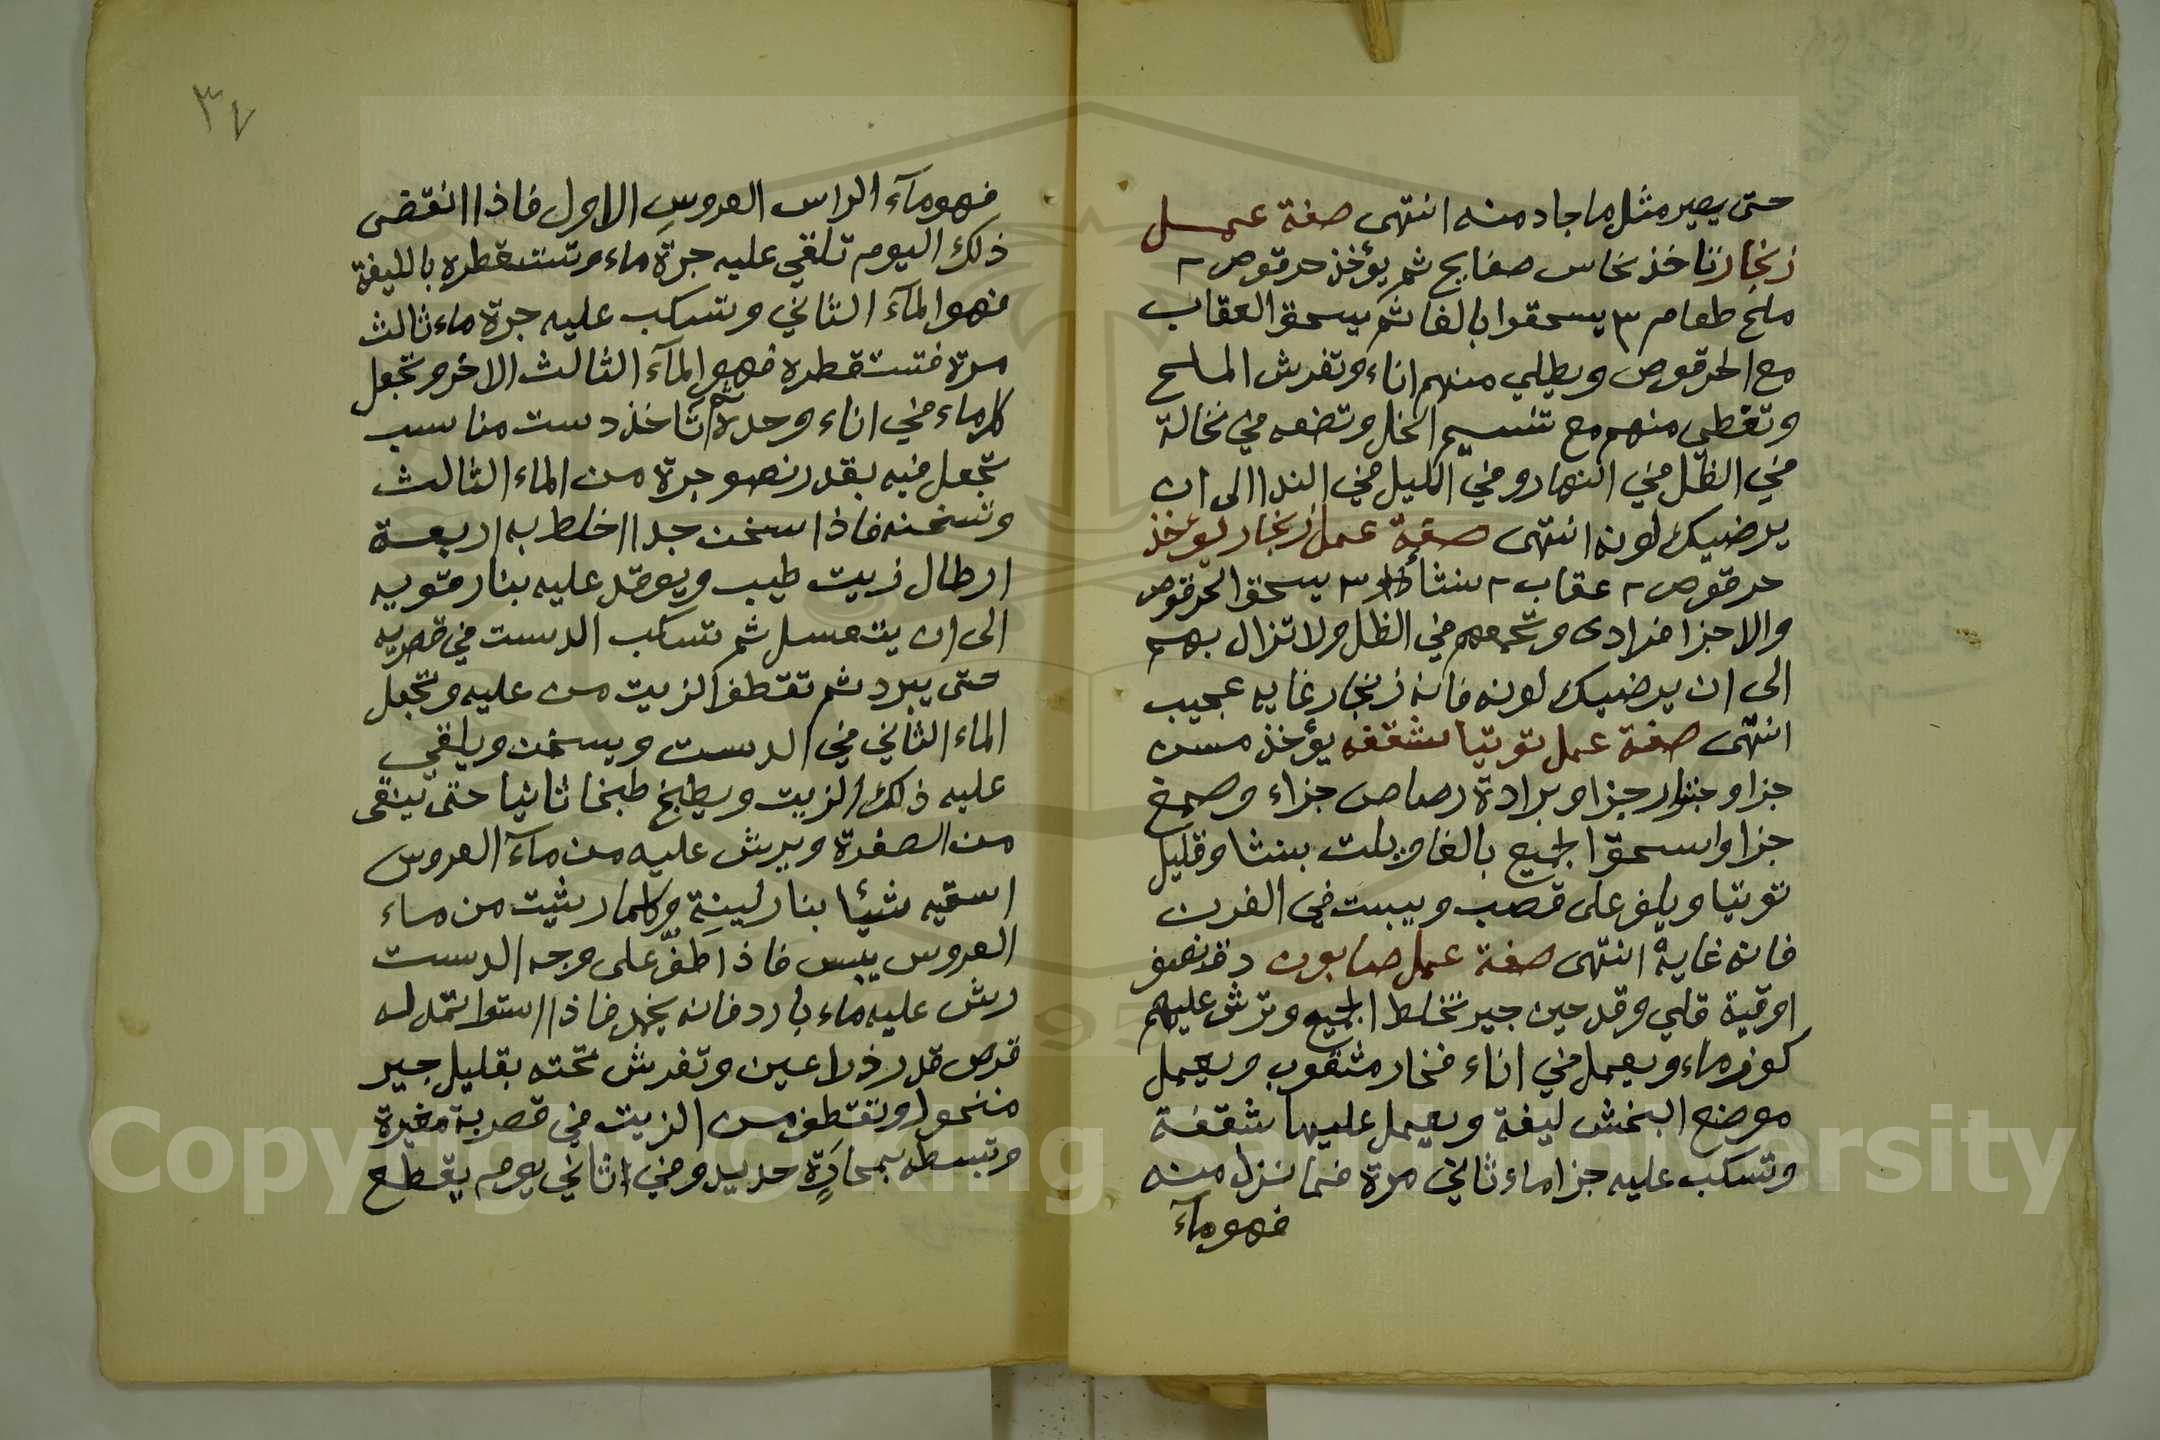 حتى يصير مثل ما جاد منه انتهى صفة عمل
زنجار تاخذ نحاس صفايح ثم يؤخذ حرقوص ٢
ملح طعام ٣ يسحقوا بالغا ثم يسحق العقاب
مع الحرقوص ويطلي منهم اناء وتفرش الملح
وتغطي منهم مع تنسيم الخل وتضعه في نخالة
في الظل في النهار وفي الليل في الندا الى ان
يرضيك لونه انتهى صفة عمل زنجار يؤخذ
حرقوص ٢ عقاب ٢ ٣ يسحق الحرقوص
والاجزا فرادى وتجمعهم في الظل ولا تزال بهم
الى ان يرضيك لونه فانه زنجار غايه عجيب
انتهى صفة عمل توتيا شقفه يؤخذ مسن
جزا وجزا وبرادة رصاص جزاء وصمغ
جزا واسحق الجميع بالغا ويلت بنشا وقليل
توتيا ويلف على قصب ويبيت في الفرن
فانه غاية انتهى صفة عمل صابون دق نصف
اوقية قلي وقدحين جير تخلط الجميع وترش عليهم
كوز ماء ويعمل في اناء فخار مثقوب ويعمل
موضع البخش ليفة ويعمل عليها شقفة
وتسكب عليه جزا ماء ثاني مرة فما نزل منه
فهو مآء
٣٧
فهو مآء الراس العروس الاول فاذا انقضى
ذلك اليوم تلقي عليه جرة ماء وتستقطره بالليفة
فهو المآء الثاني وتسكب عليه جرة ماء ثالث
مرة فتستقطره فهو المآء الثالث الاخر وتجعل
كل ماء في اناء وحده ثم تاخذ دست مناسب
تجعل فيه بقدر نصف جرة من الماء الثالث
وتسخنه فاذا سخن جدا اخلط به اربعة
ارطال زيت طيب ويوقد عليه بنار قويه
الى ان يتعسل ثم تسكب الدست في قصريه
حتى يبرد ثم تقطف الزيت من عليه وتجعل
الماء الثاني في الدست ويسخن ويلقي
عليه ذلك الزيت ويطبخ طبخا ثانيا حتى ينقى
من الصفرة ويرش عليه من مآء العروس
اسقيه شيئا بنار لينة وكلما رشيت من ماء
العروس يبس فاذا طف على وجه الدست
رش عليه ماء بارد فانه يخمد فاذا استوا تمد له
قرص قدر ذراعين وتفرش تحته بقليل جير
منخول وتقطف من الزيت في قصرية
وتبسطه حديد وفي اثاني يوم يقطع